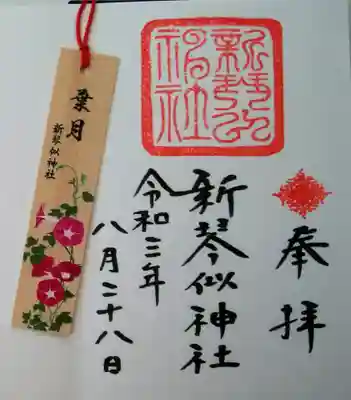 奉拝
新琴似神社
新琴似神社
令和三年
八月二十八日
葉月
新琴似神社